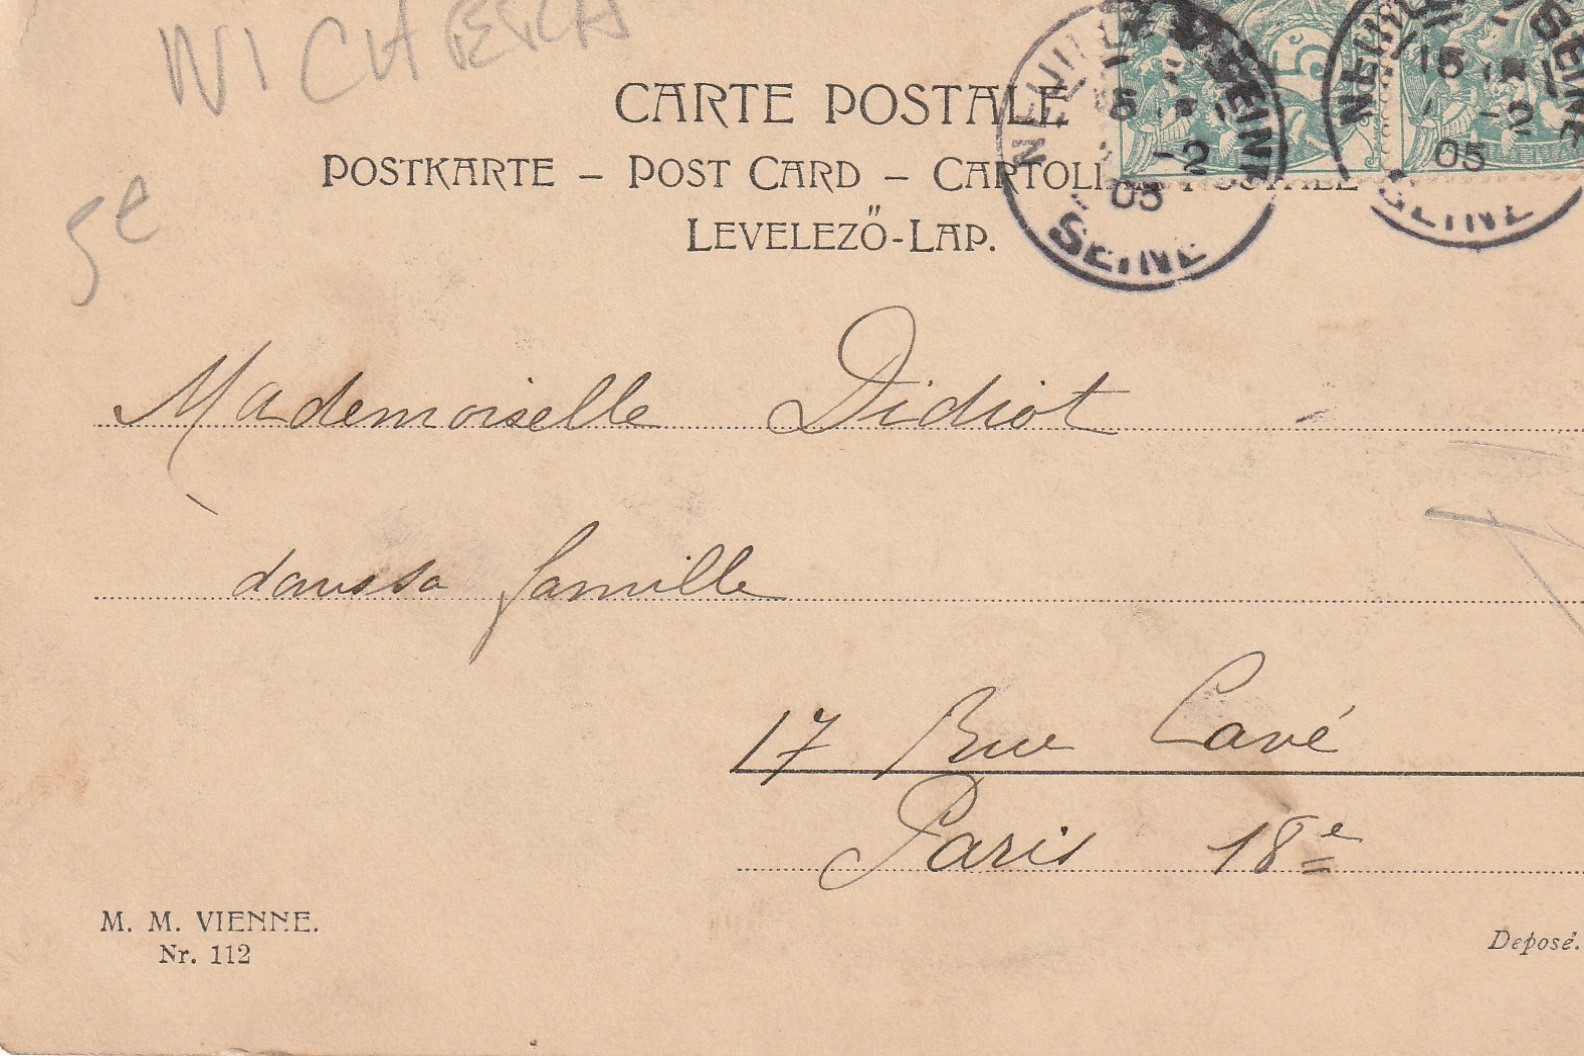 CARTE POSTALE
POSTKARTE – POST CARD – CARTOLINA POSTALE
LEVELEZŐ-LAP.
5e
NEUILLY S SEINE
15
-2
05
SEINE
5
NEUILLY S SEINE
15
-2
05
SEINE
Mademoiselle Didiot
dans sa famille
17 Rue Cavé
Paris 18e
M. M. VIENNE.
Nr. 112
Deposé.